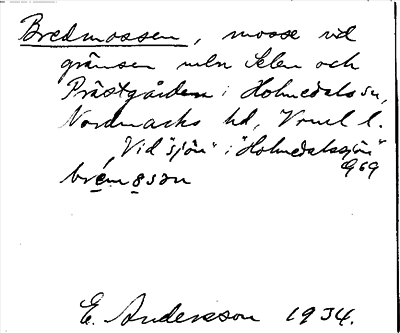 Bredmossen, mosse vid
gränsen mln Selen och
Prästgården i Holmedals sn,
Nordmarks hd, Vrml l.
Vid "sjön" i "Holmedalssjön"
G69
brémosən
E. Andersson 1934.